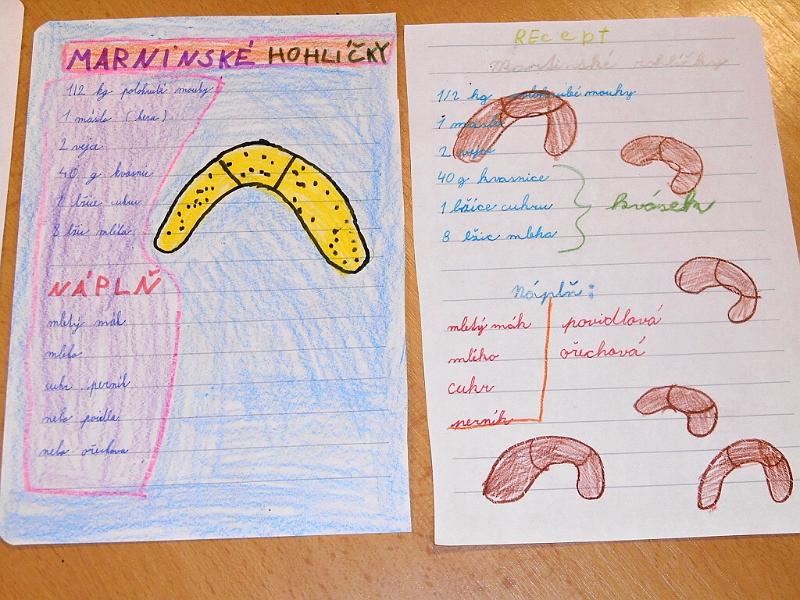 MARNINSKÉ HOHLÍČKY
1/2 kg polohrubé mouky
1 máslo (hera)
2 vejce
40 g kvasnic
1 lžíce cukru
8 lžic mléka
NÁPLŇ
mletý mák
mléko
cukr perník
nebo povidla
nebo ořechova
REcept
Martinské rohlíčky
1/2 kg polohrubé mouky
1 máslo
2 vejce
40 g kvasnice
1 lžíce cukru
8 lžic mleka
kvásek
Náplň:
mletý mák povidlová
mlého ořechová
cukr
perník